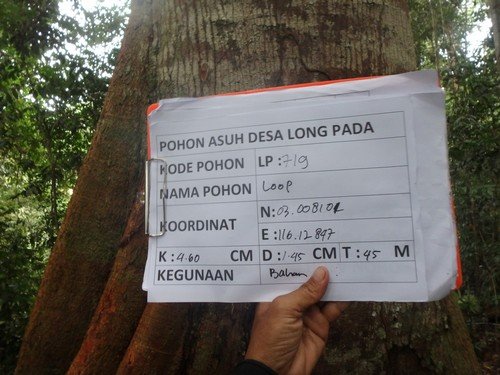 POHON ASUH DESA LONG PADA
KODE POHON LP : 719
NAMA POHON Loop
KOORDINAT N: 03.00810
E : 116.12897
K : 4.60 CM D : 1.45 CM T : 45 M
KEGUNAAN Bahan